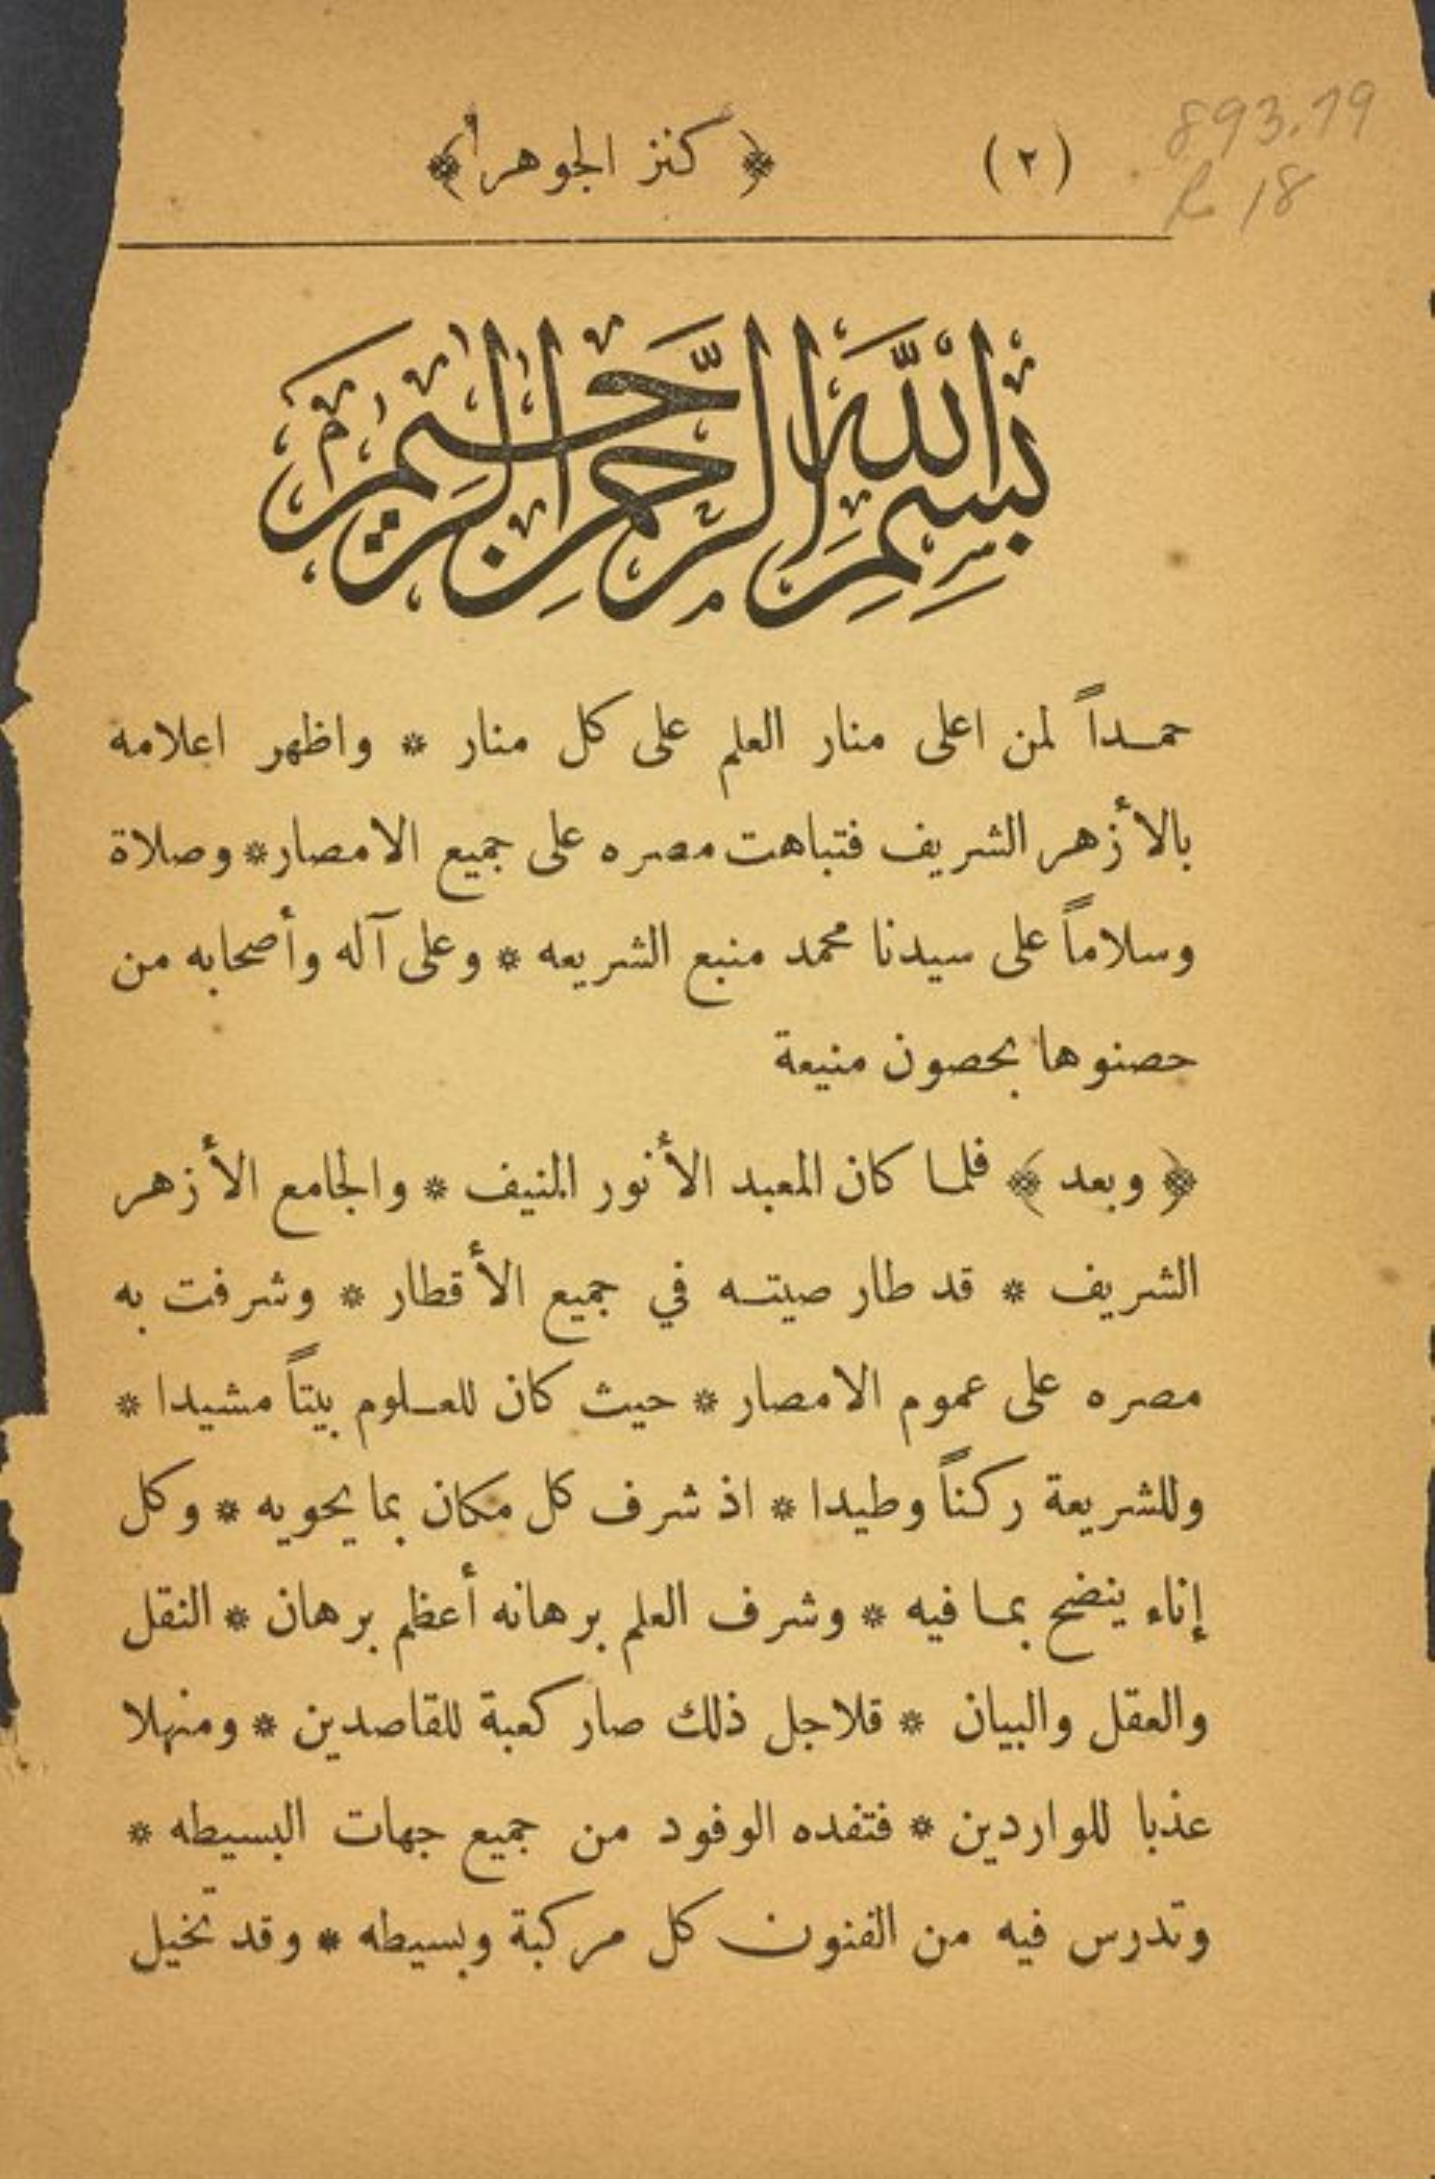 893.19
R 18
(٢) ﴿ كنز الجوهر ﴾
بسم الله الرحمن الرحيم
حمـداً لمن اعلى منار العلم على كل منار * واظهر اعلامه
بالأزهر الشريف فتباهت مصره على جميع الامصار * وصلاة
وسلاماً على سيدنا محمد منبع الشريعه * وعلى آله وأصحابه من
حصنوها بحصون منيعة
﴿ وبعد ﴾ فلما كان المعبد الأنور المنيف * والجامع الأزهر
الشريف * قد طار صيتـه في جميع الأقطار * وشرفت به
مصره على عموم الامصار * حيث كان للعـلوم بيتاً مشيدا *
وللشريعة ركناً وطيدا * اذ شرف كل مكان بما يحويه * وكل
إناء ينضح بمـا فيه * وشرف العلم برهانه أعظم برهان * النقل
والعقل والبيان * قلاجل ذلك صار كعبة للقاصدين * ومنهلا
عذبا للواردين * فتفده الوفود من جميع جهات البسيطه *
وتدرس فيه من الفنون كل مركبة وبسيطه * وقد تخيل